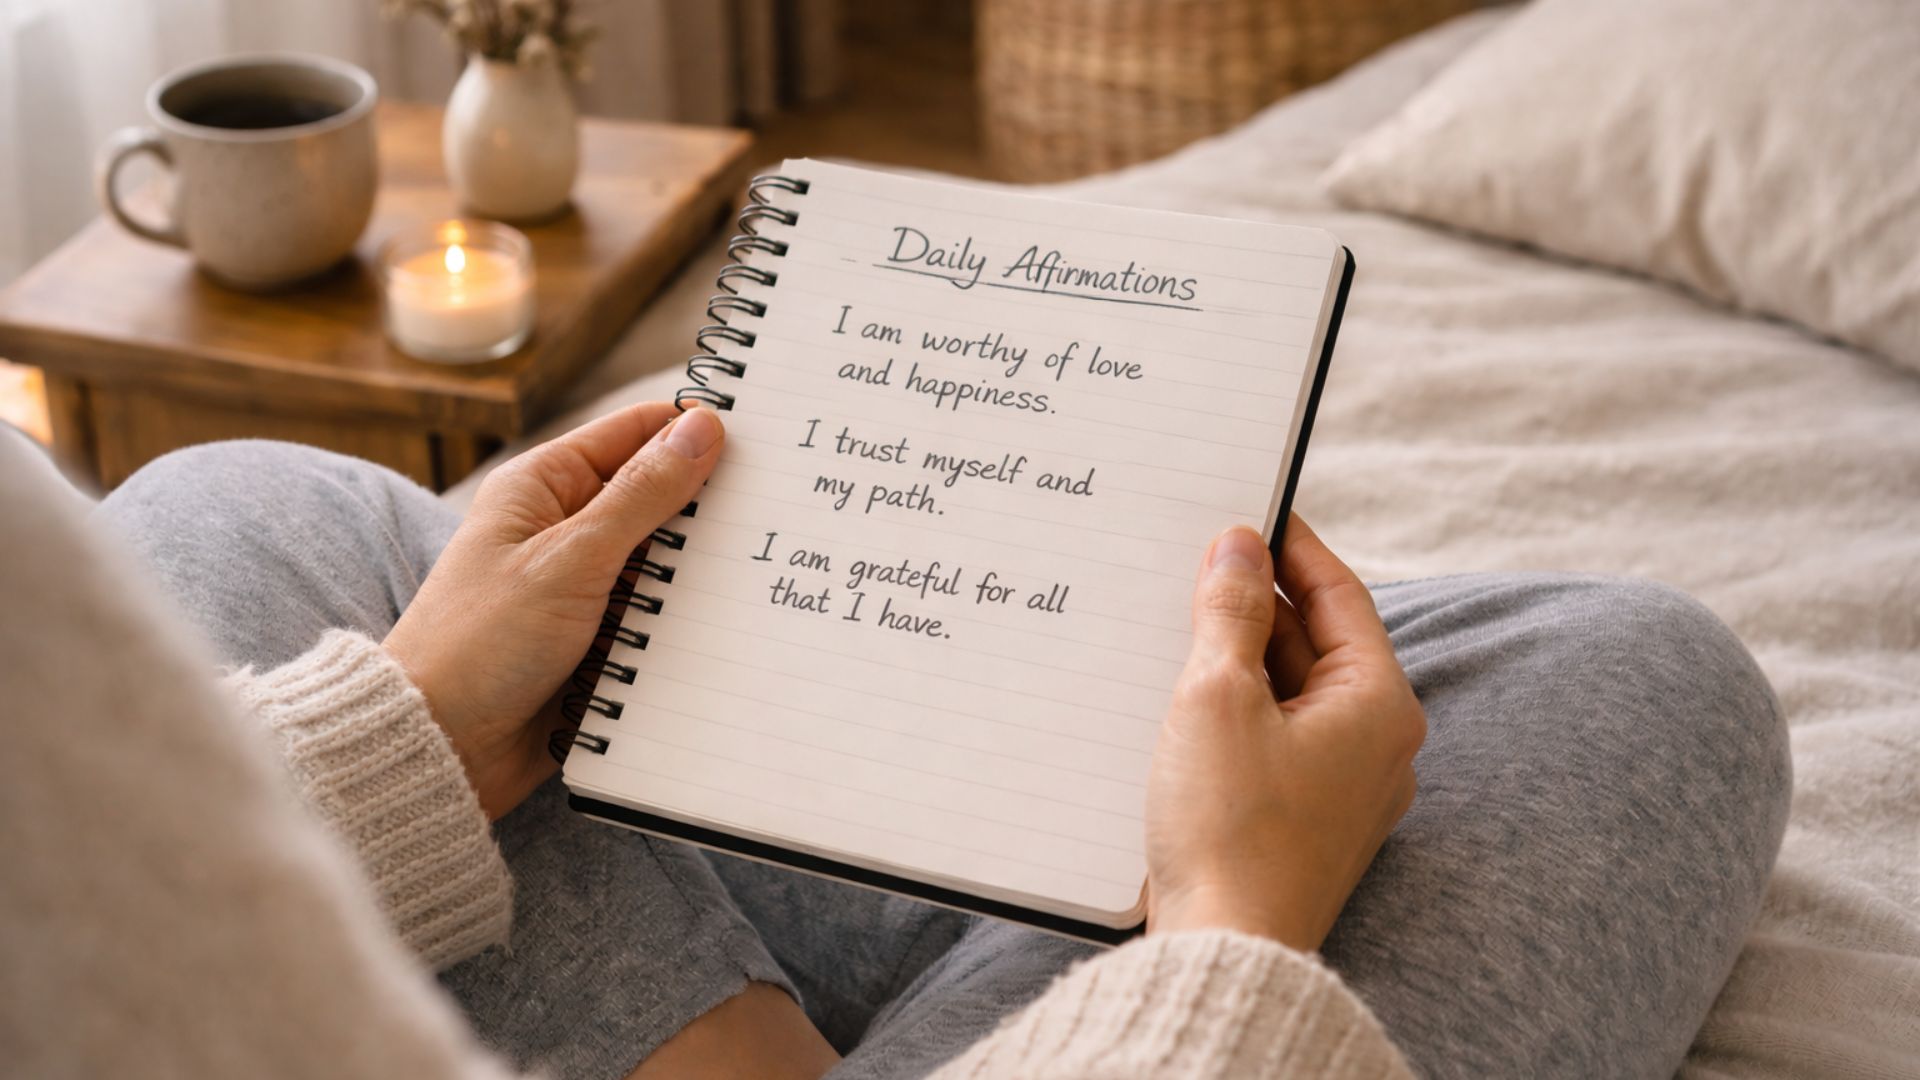 Daily Affirmations
I am worthy of love
and happiness.
I trust myself and
my path.
I am grateful for all
that I have.